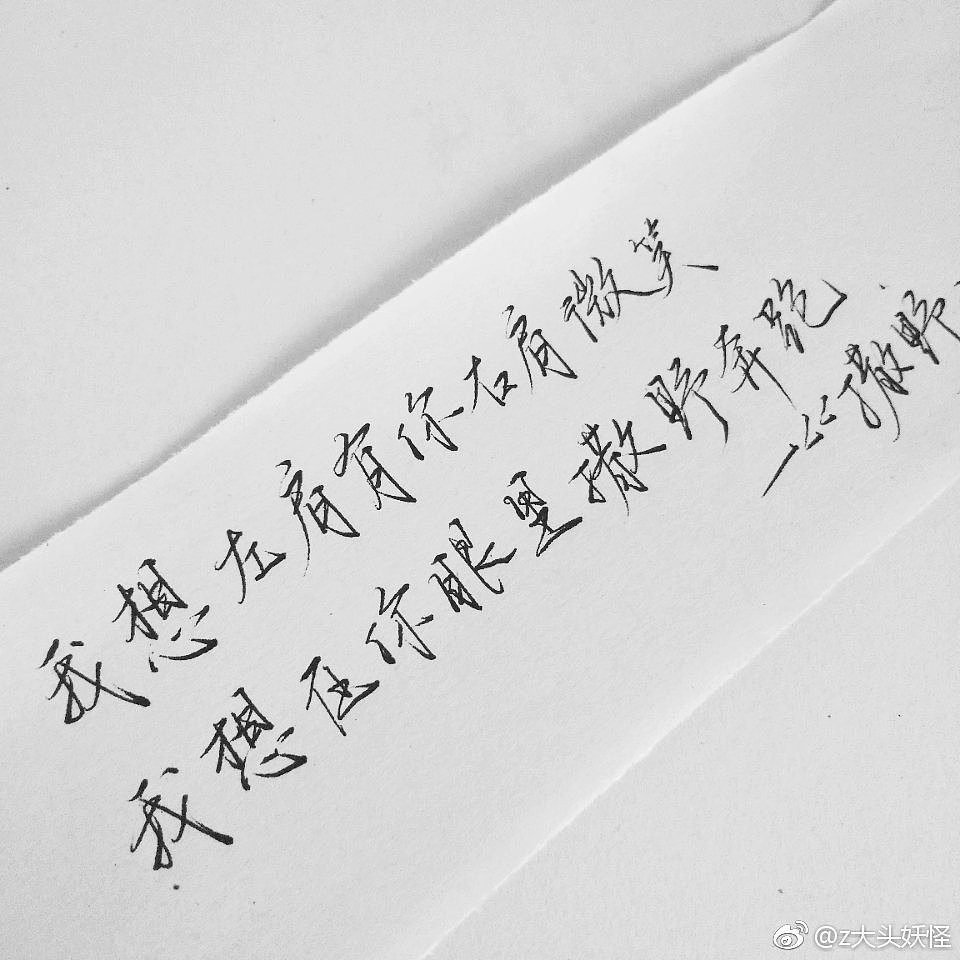 我想左肩有你右肩微笑
我想在你眼里撒野奔跑
——《撒野
@z大头妖怪